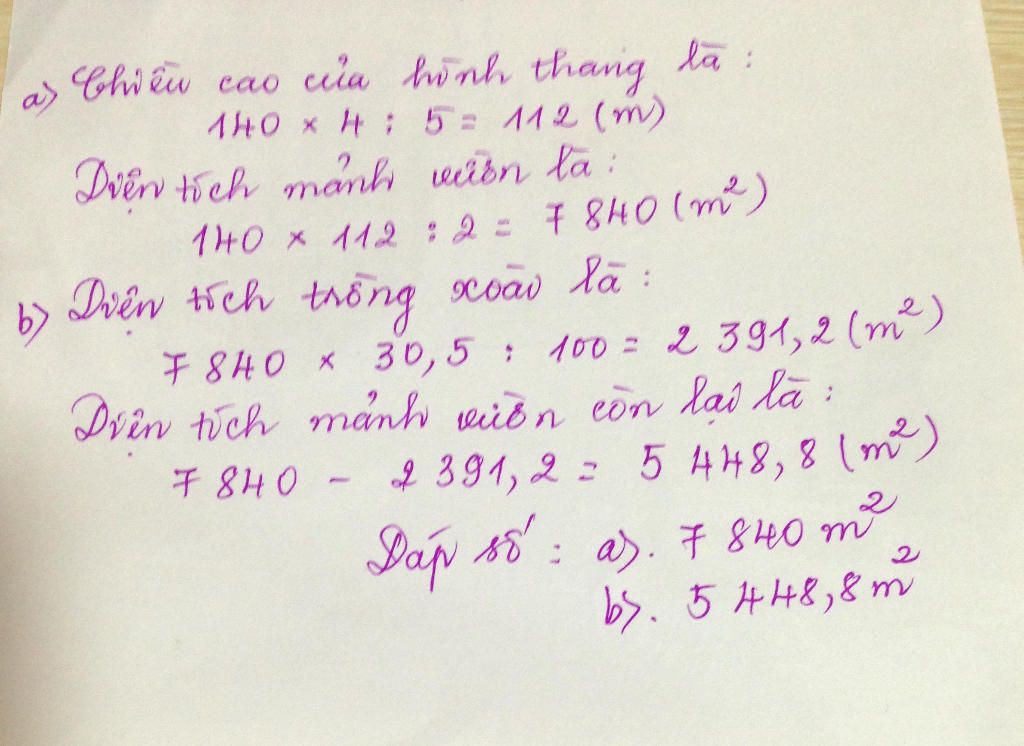 a) Chiều cao của hình thang là :
140 × 4 : 5 = 112 (m)
Diện tích mảnh vườn là :
140 × 112 : 2 = 7 840 (m²)
b) Diện tích trồng xoài là :
7 840 × 30,5 : 100 = 2 391,2 (m²)
Diện tích mảnh vườn còn lại là :
7 840 - 2 391,2 = 5 448,8 (m²)
Đáp số : a). 7 840 m²
b). 5 448,8 m²